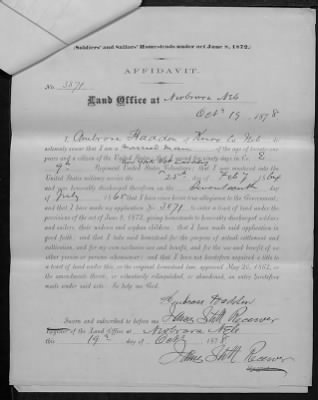 (Soldiers' and Sailors' Homesteads under act June 8, 1872.)
AFFIDAVIT.
No. 3871
Land Office at Niobrara Neb
Octr 19 1878
I, Ambrose Haddon of Knox Co Neb do
solemnly swear that I am a married man of the age of twenty-one
years and a citizen of the United States; that I served for ninety days in Co.
9th Regiment United States Volunteers; that I was mustered into the
United States military service the day of Feby 1864
and was honorably discharged therefrom on the Seventeenth day
of July 1865 that I have since borne true allegiance to the Government,
and that I have made my application No. 3871 to enter a tract of land under the
provisions of the act of June 8, 1872, giving homesteads to honorably discharged soldiers
and sailors, their widows and orphan children; that I have made said application in
good faith; and that I take said homestead for the purpose of actual settlement and
cultivation, and for my own exclusive use and benefit, and for the use and benefit of no
other person or persons whomsoever; and that I have not heretofore acquired a title to
a tract of land under this, or the original homestead law, approved May 20, 1862, or
the amendments thereto, or voluntarily relinquished, or abandoned, an entry heretofore
made under said acts. So help me God.
Ambrose Haddon
Sworn and subscribed to before me James Stott Receiver
Register of the Land Office at Niobrara Neb
this 19th day of Octr 1878
James Stott Receiver